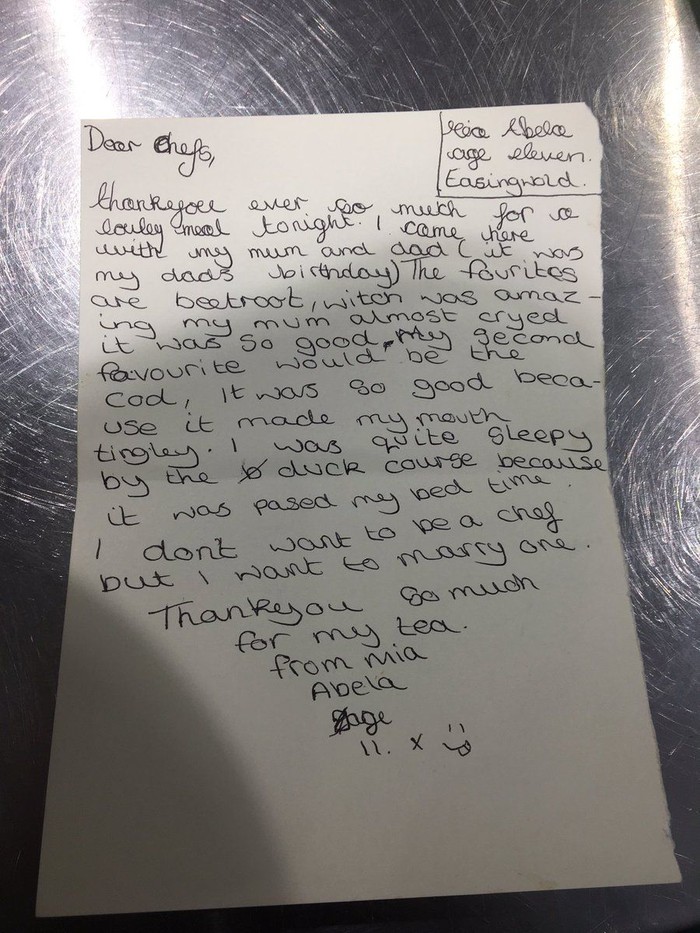 Dear Chefs,
Mia Abela
age eleven.
Easingwold.
thankyou ever so much for a
louley meal tonight. I came here
with my mum and dad (it was
my dads birthday) The favrites
are beetroot, witch was amaz-
ing my mum almost cryed
it was so good, My second
favourite would be the
cod, it was so good beca-
use it made my mouth
tingley. I was quite sleepy
by the duck course because
it was pased my bed time.
I don't want to be a chef
but I want to marry one.
Thankyou so much
for my tea.
from mia
Abela
age
11. x